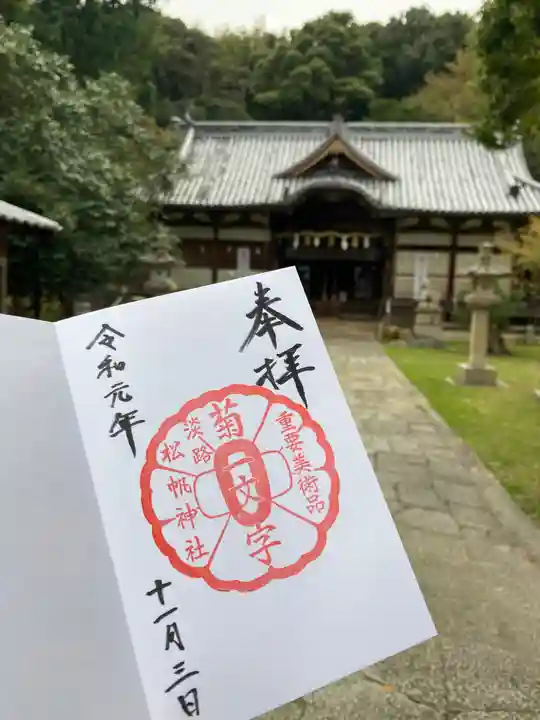 奉拝
重要美術品
菊一文字
淡路
松帆神社
令和元年
十一月三日